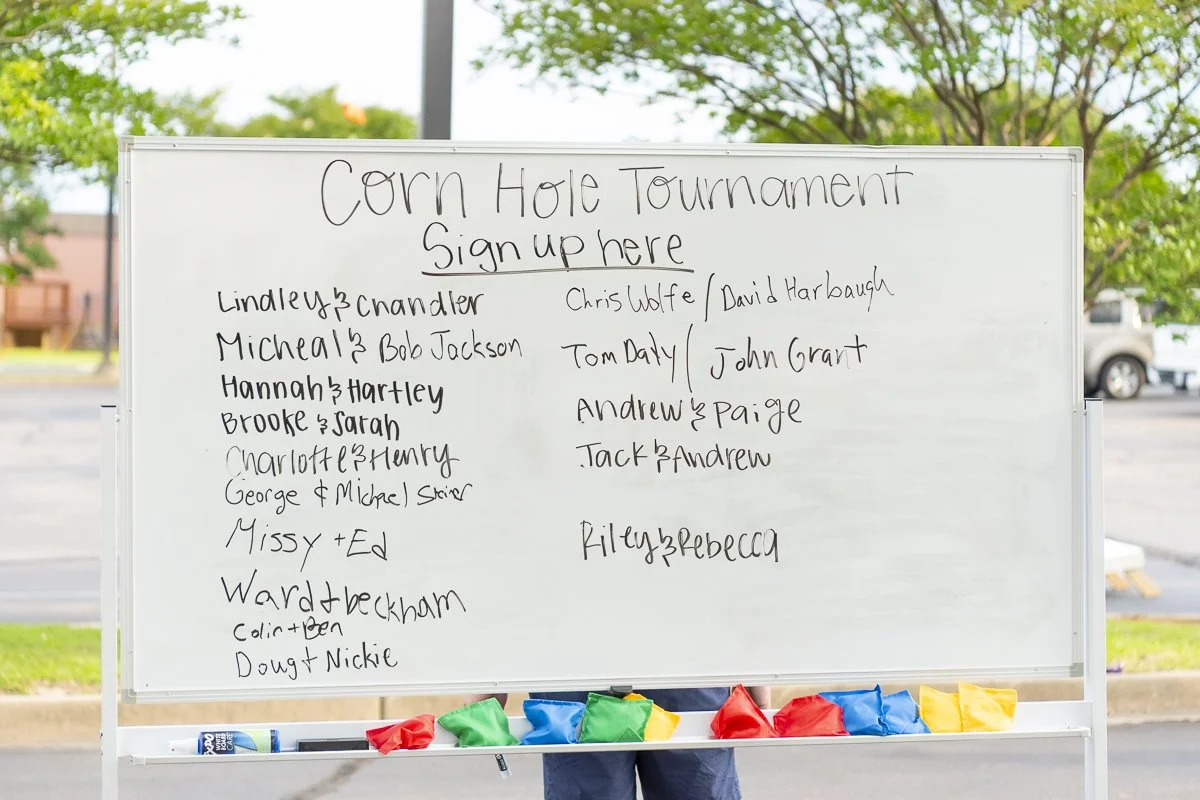 Corn Hole Tournament
Sign up here
Lindley & Chandler
Micheal & Bob Jackson
Hannah & Hartley
Brooke & Sarah
Charlotte & Henry
George & Michael
Missy + Ed
Ward + beckham
Colin + Ben
Doug + Nickie
Chris Wolfe / David Harbaugh
Tom Daty / John Grant
Andrew & Paige
Jack & Andrew
Riley & Rebecca
EXPO
WHITE BOARD CARE